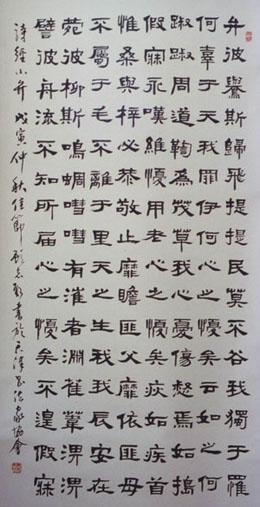 弁彼鸒斯歸飛提提民莫不谷我獨于罹
何辜于天我罪伊何心之憂矣云如之何
踧踧周道鞠為茂草我心憂傷惄焉如搗
假寐永嘆維憂用老心之憂矣疢如疾首
惟桑與梓必恭敬止靡瞻匪父靡依匪母
不屬于毛不離于里天之生我我辰安在
菀彼柳斯鳴蜩嘒嘒有漼者淵萑葦淠淠
譬彼舟流不知所屆心之憂矣不遑假寐
詩經小弁 戊寅仲秋佳節 顧志新書於天津書法家協會